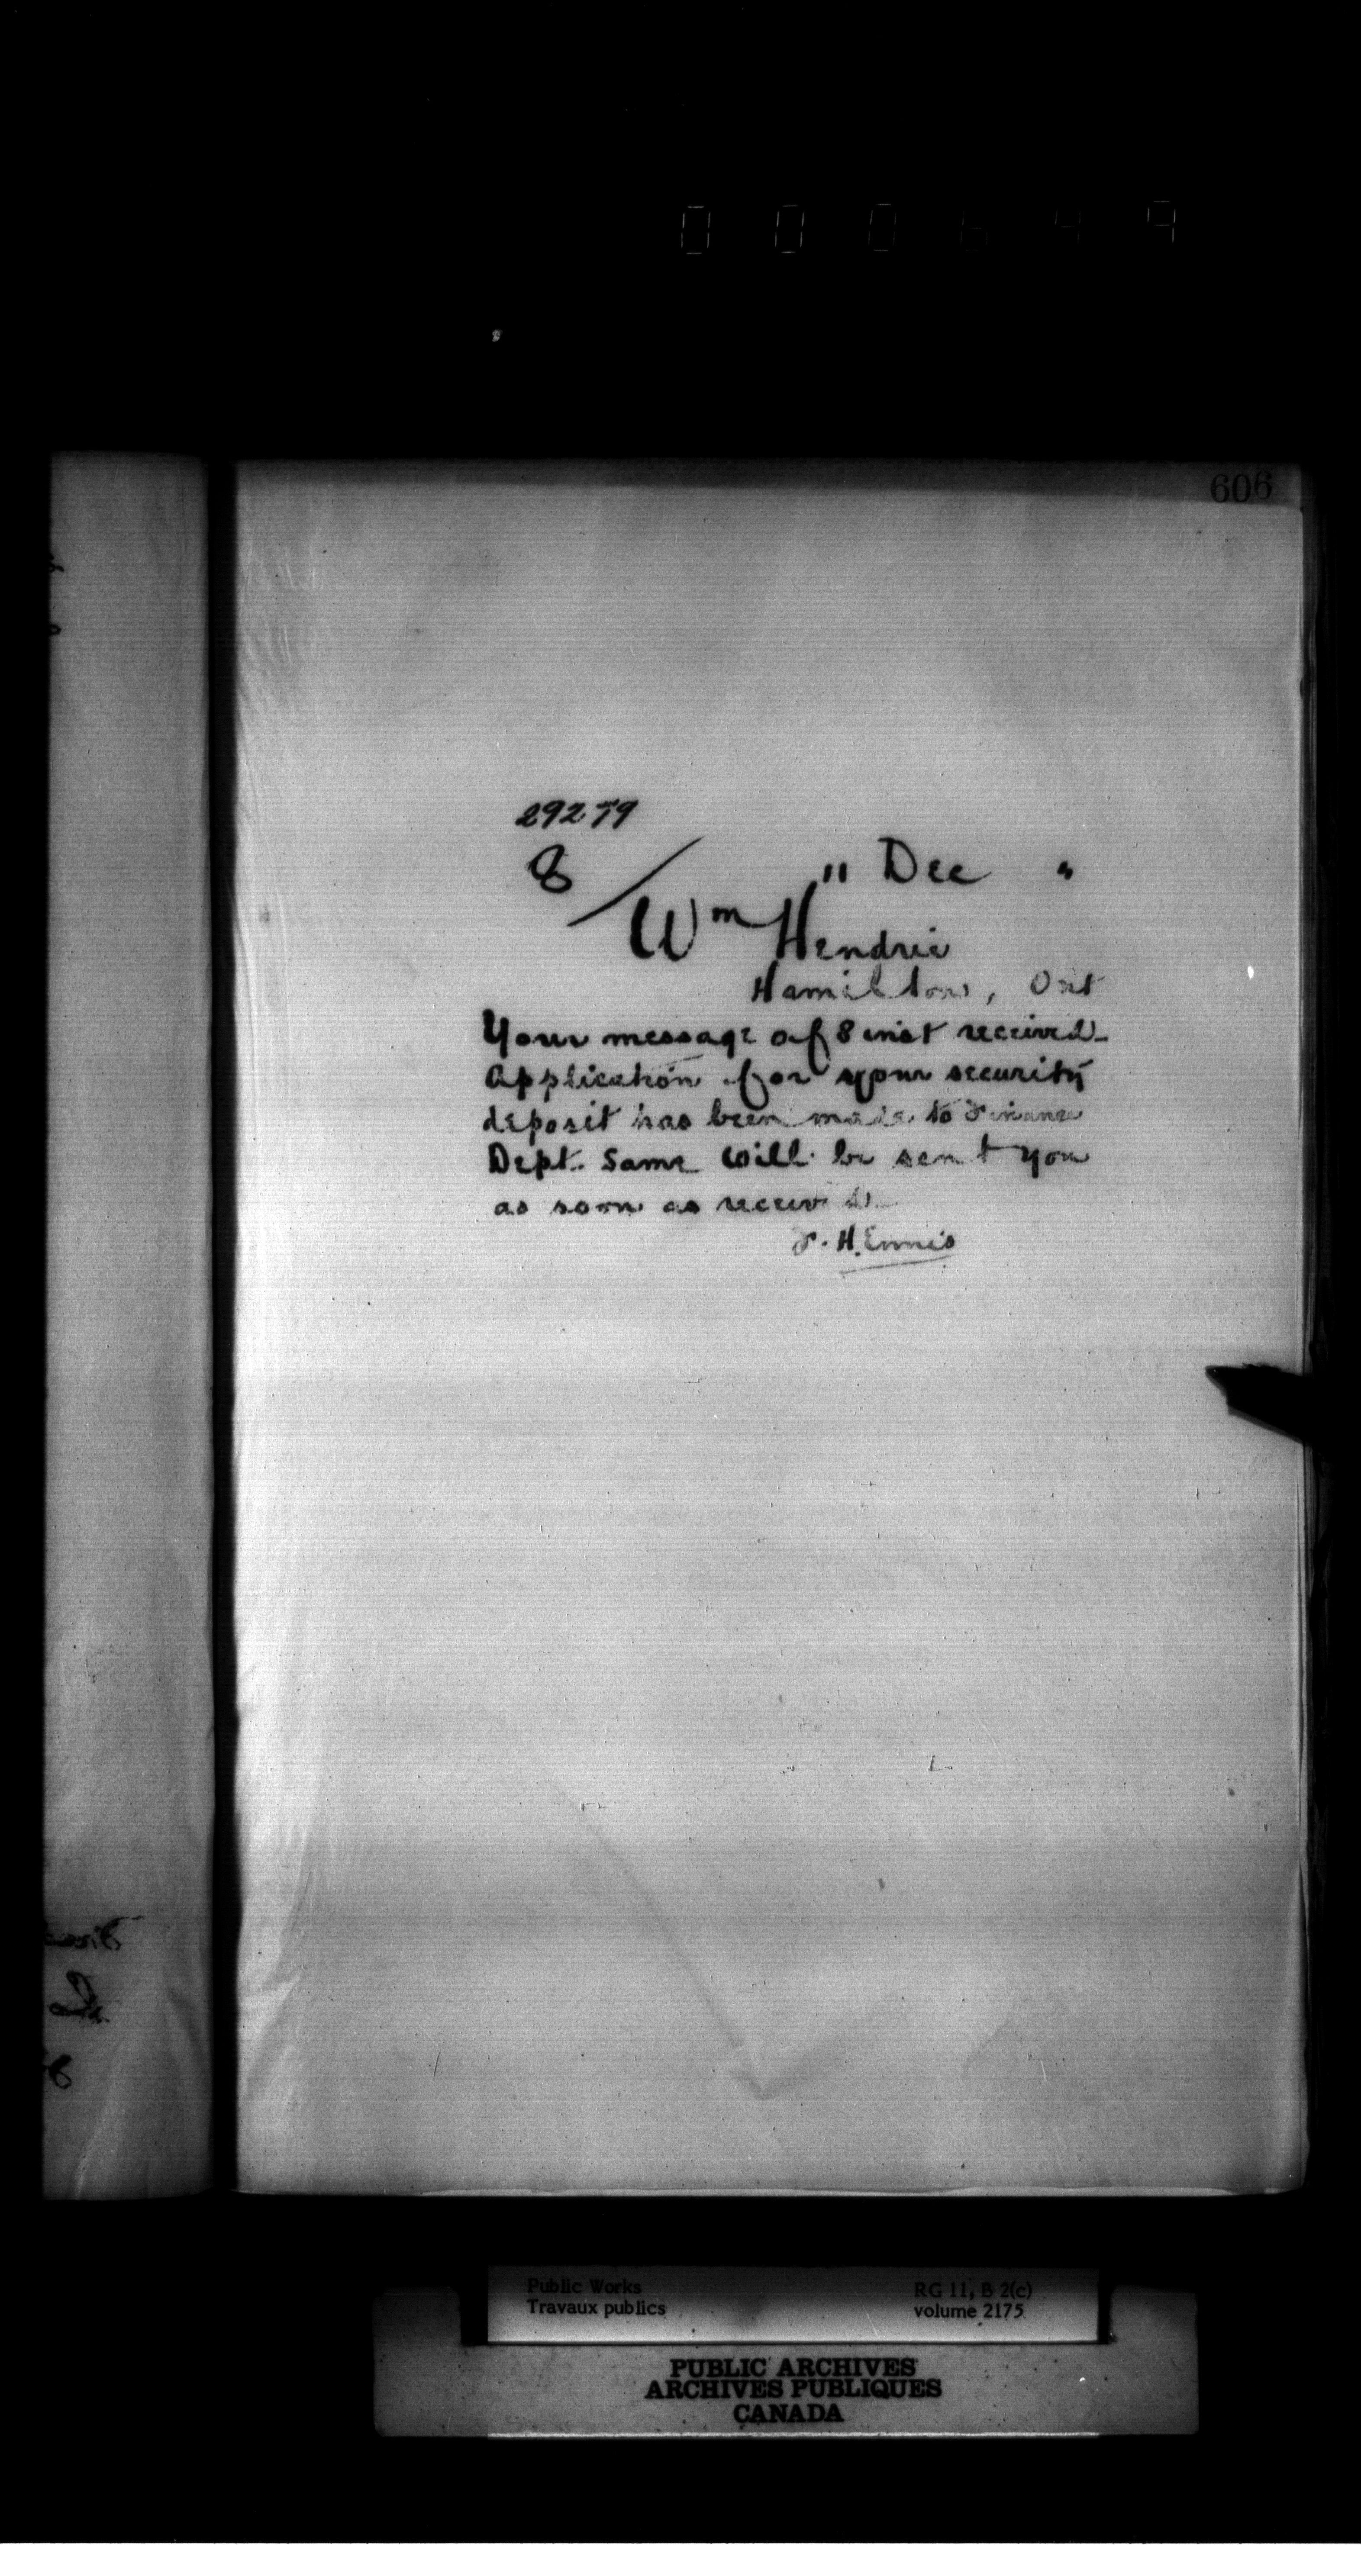 000649
606
29279
8/ " Dec "
Wm Hendrie
Hamilton, Ont
Your message of 8 inst received_
Application for your security
deposit has been made to Finance
Dept. Same will be sent you
as soon as received_
F. H. Ennis
Public Works
Travaux publics
RG 11, B 2(c)
volume 2175
PUBLIC ARCHIVES
ARCHIVES PUBLIQUES
CANADA